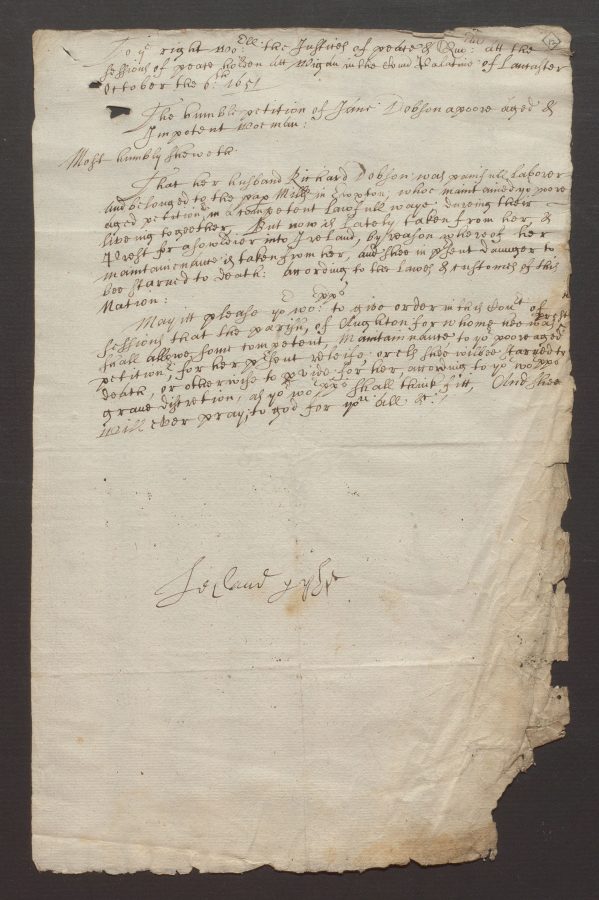 To ye right wo:ll the Justices of peace & Quo: att the
sessions of peace holden att Wigan in the Coun Palatine of Lancaster
October the 6th 1651
The humble petition of Jane Dobson a poore aged &
Impotent woeman:
Most humbly sheweth
That her husband Richard Dobson was painfull Laborer
and belonged to the pap Mills in whoe maintained yo poore
aged petitionr in a competent Lawfull waye dureing their
liveing together, But now is lately taken from her, &
Prest for a souldier into Ireland, by reason whereof her
maintainenance is taken from her, and shee in psent daunger to
bee starved to death: acording to the lawes & customes of this
Nation:
May itt please yo wopps to give order in this Court of
Sessions that the parish of Aughton for whome hee was prest
shall allowe some competent Maintainance to yo poore aged
petitionr for her psent releife, or els shee wilbee starved to
death, or otherwise to pvide for her, acording to yo wopps
grave discretion, as yo wopps shall thinke fitt, And shee
will ever pray to god for you all &c: